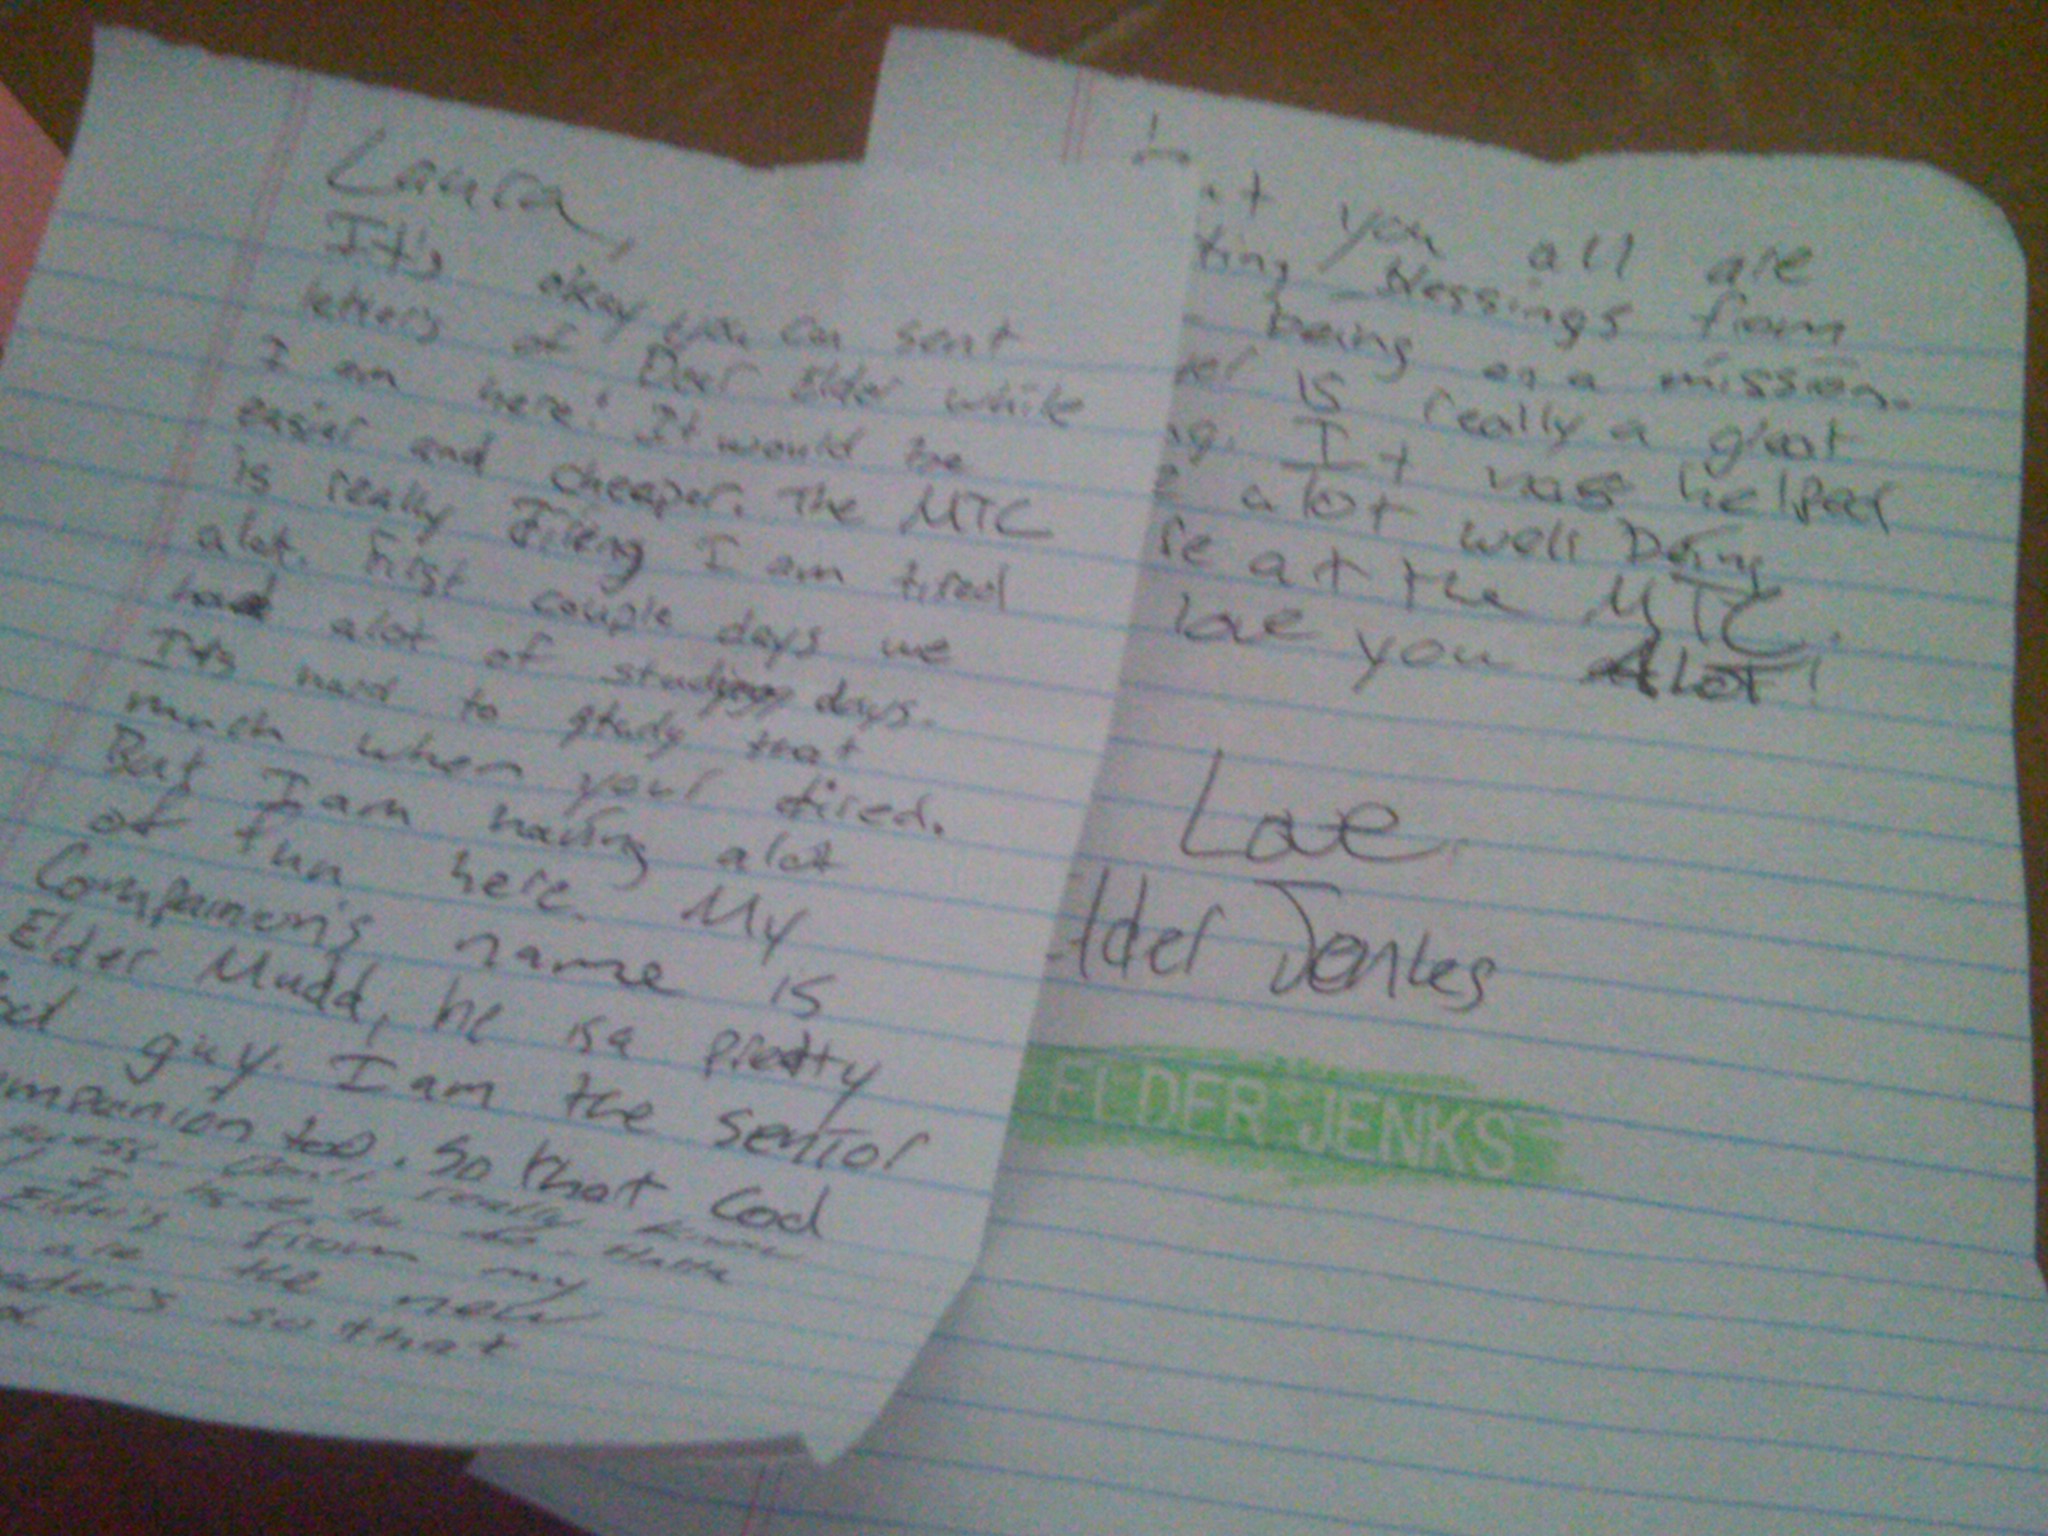 Laura,
It's okay you can sent
letters of Dear Elder while
I am here! It would be
easier and cheaper. The MTC
is really I am tired
alot. First couple days we
had alot of studying days.
Its hard to study that
much when your tired.
But I am having alot
of fun here. My
Companion's name is
Elder Mudd, he is a pretty
guy. I am the senior
too. So that
really
I have to do.
Elder's from my
are the new
so that
you all are
blessings from
being on a mission.
is really a great
It helped
a lot well Doing
at the MTC.
love you ALOT!
Love,
Jenks
ELDER JENKS